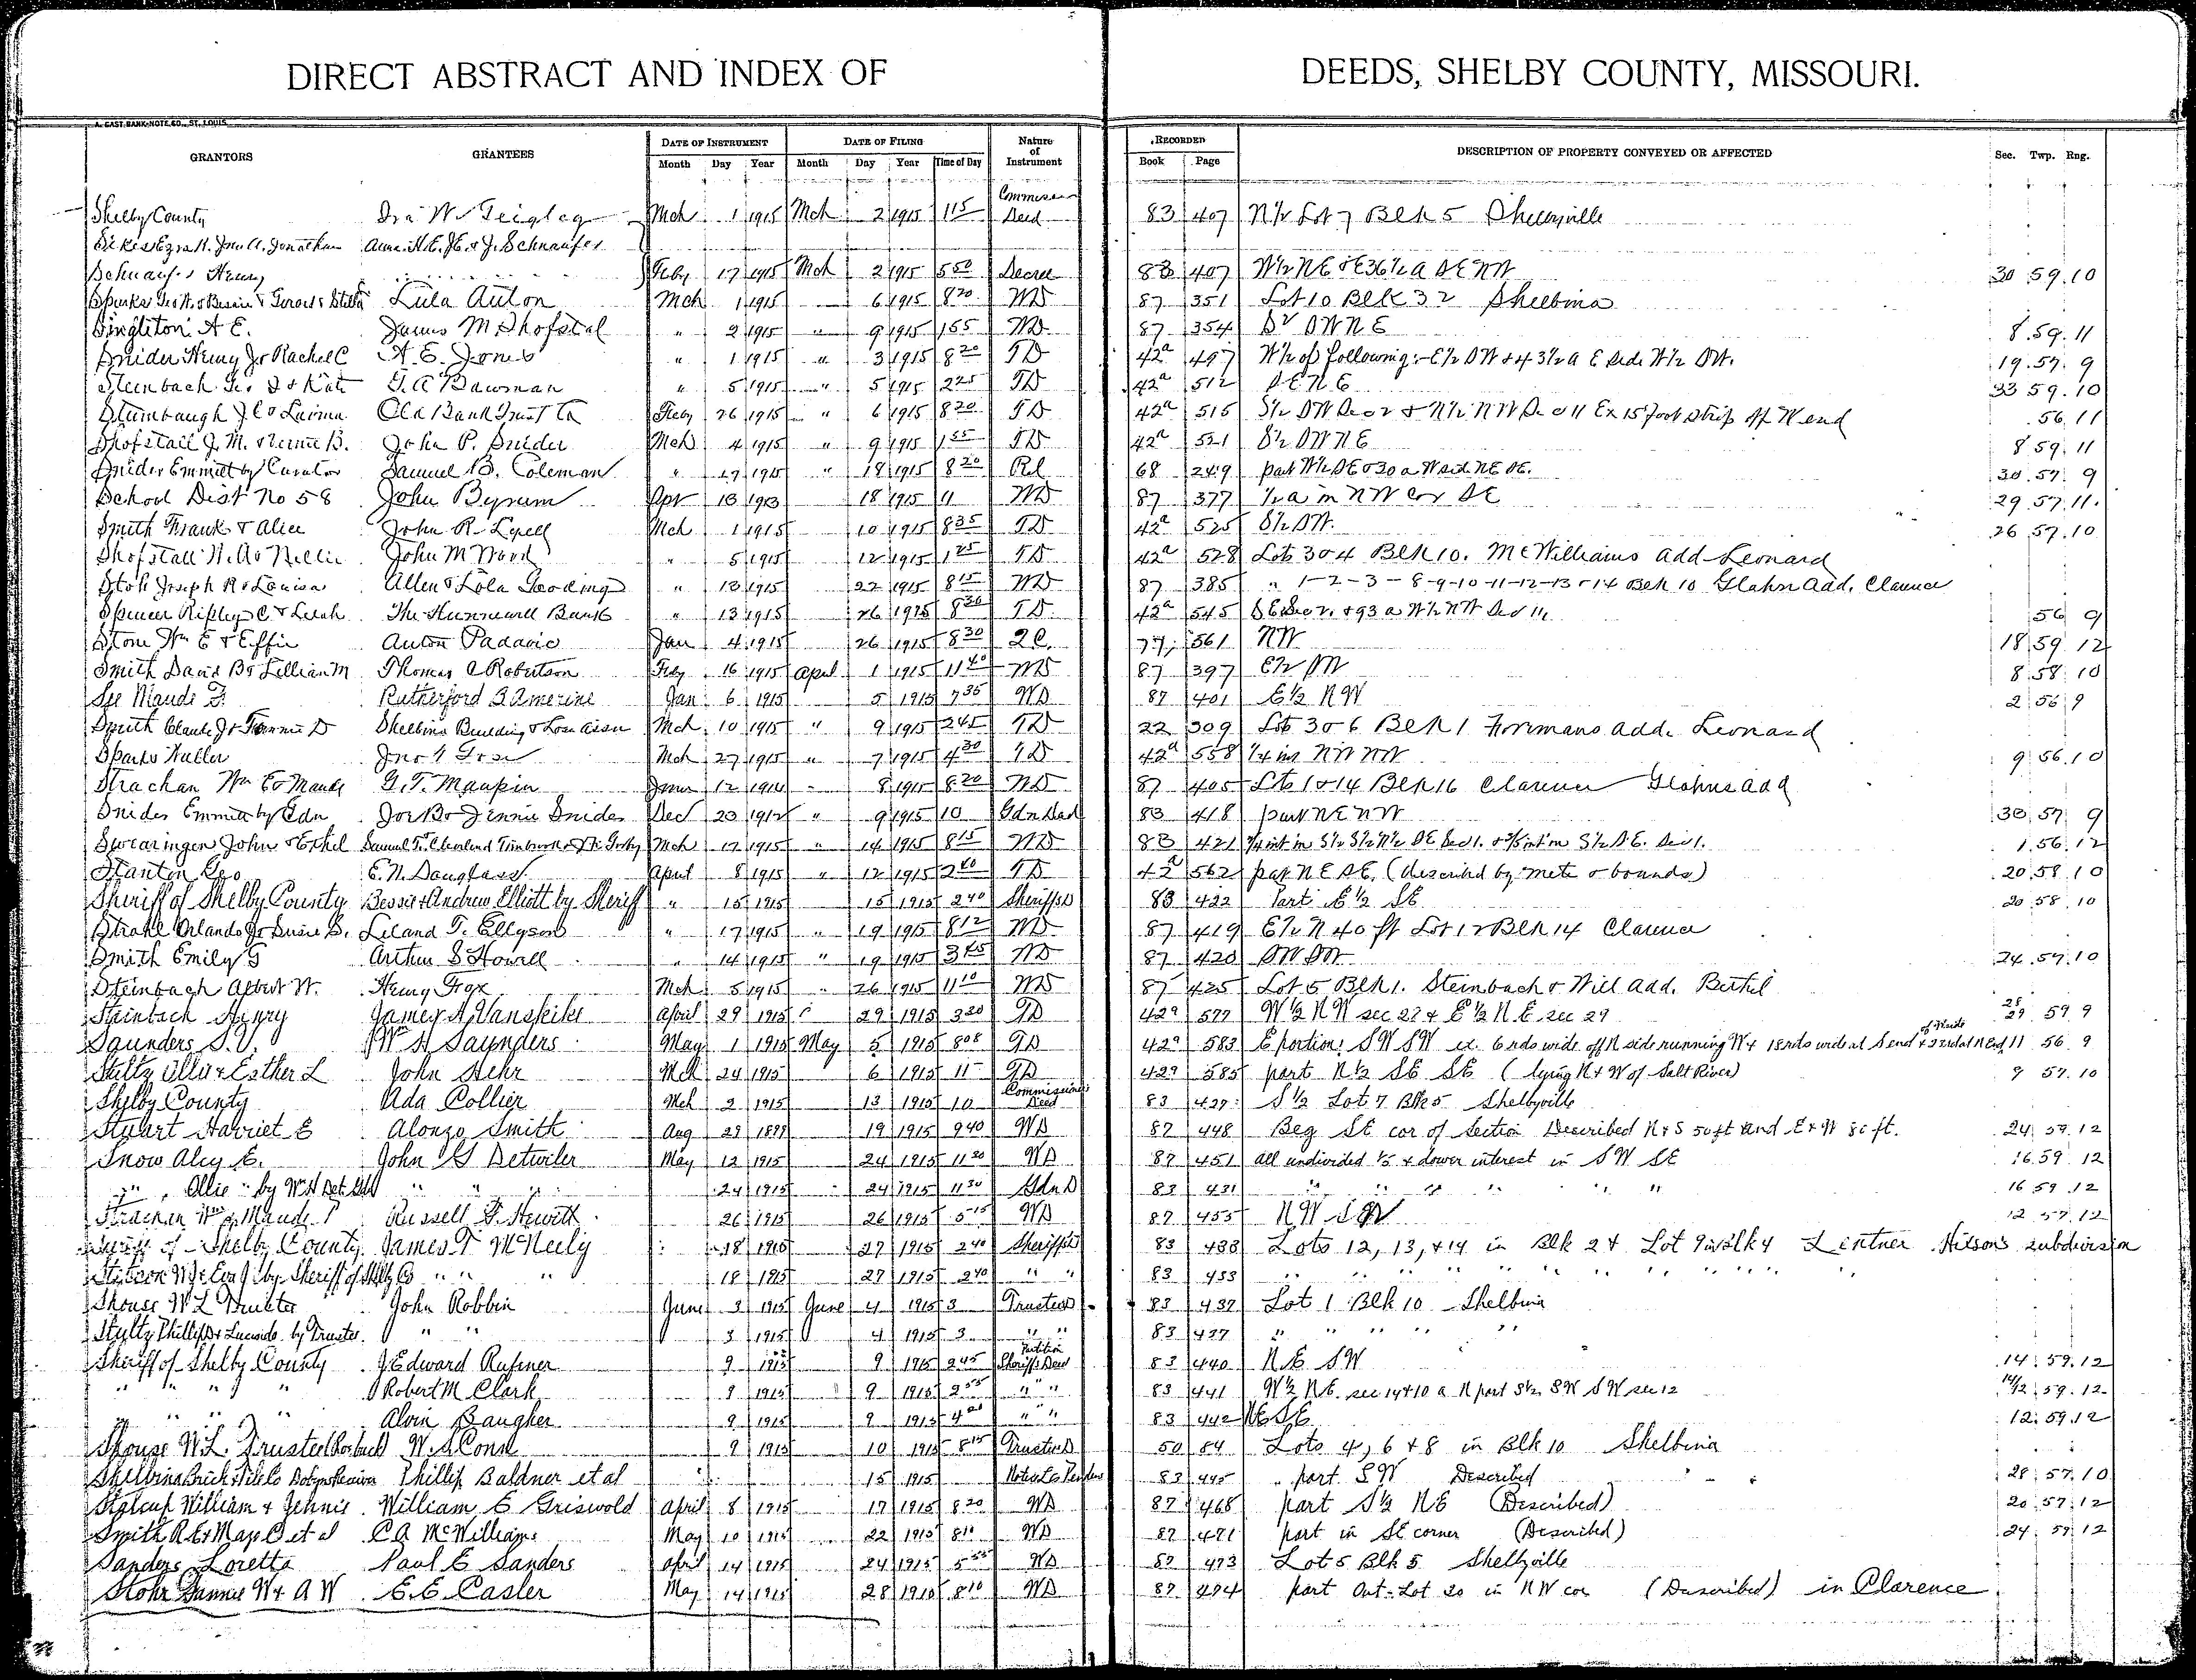 DIRECT ABSTRACT AND INDEX OF DEEDS, SHELBY COUNTY, MISSOURI.
A. GAST BANK-NOTE CO., ST. LOUIS
GRANTORS GRANTEES DATE OF INSTRUMENT DATE OF FILING Nature of Instrument RECORDED DESCRIPTION OF PROPERTY CONVEYED OR AFFECTED Sec. Twp. Rng.
Month Day Year Month Day Year Time of Day Book Page
Shelby County Ira W. Mch 1 1915 Mch 2 1915 1 15 Deed 83 407 N½ Lot 7 Blk 5 Shelbyville
Schnaufer Henry Feby 17 1915 Mch 2 1915 5 50 Decree 83 407 W½ NE & E 36½ a SE NW 30 59 10
Lula Auton Mch 1 1915 6 1915 8 20 WD 87 351 Lot 10 Blk 32 Shelbina
Singleton A E. James M Shofstal " 2 1915 " 9 1915 1 55 WD 87 354 S½ SW NE 8 59 11
Snider Henry J & Rachel C A. E. Jones " 1 1915 " 3 1915 8 20 TD 42a 497 W½ of following:- E½ SW & 43½ a E side W½ SW. 19 57 9
Steinbach Geo J & Kate G. A. Bauman " 5 1915 " 5 1915 2 25 TD 42a 512 SE NE 33 59 10
Stumbaugh J C & Laima Old Bank Trust Co Feby 26 1915 " 6 1915 8 20 TD 42a 515 S½ SW Sec 2 & N½ NW Sec 11 Ex 15 foot strip off W end 56 11
Shofstall J. M. & Bernie B. John P. Snider Mch 4 1915 " 9 1915 1 55 TD 42a 521 S½ SW NE 8 59 11
Snider Emmitt by Curator Samuel B. Coleman " 17 1915 " 18 1915 8 20 Rel 68 249 part W½ SE & 30 a W side NE SE. 30 57 9
School Dist No 58 John Bynum Apr 13 1903 18 1915 11 WD 87 377 ½ a in NW cor SE 29 57 11
Smith Frank & Alice John R. Lyell Mch 1 1915 10 1915 8 35 TD 42a 525 S½ SW. 26 57 10
Shofstall & Nellie John M Wood " 5 1915 12 1915 1 25 TD 42a 528 Lots 3 & 4 Blk 10. McWilliams add Leonard
Stoh Joseph R & Louisa Allen & Lola Gooding " 13 1915 22 1915 8 15 WD 87 385 " 1-2-3-8-9-10-11-12-13 & 14 Blk 10 Glahn Add. Clarence
Spencer Ripley C & Leah The Hunnewell Bank " 13 1915 26 1915 8 30 TD 42a 545 SE Sec 2. & 93 a W½ NW Sec 11, 56 9
Stone Wm E & Effie Anton Padavic Jan 4 1915 26 1915 8 30 2C. 77 561 NW 18 59 12
Smith David B & Lillian M Thomas C Robertson Feby 16 1915 April 1 1915 11 40 WD 87 397 E½ SW 8 58 10
See Maude F. Rutherford B Amerine Jan 6 1915 5 1915 7 35 WD 87 401 E½ NW 2 56 9
Smith Claude J & Fannie D Shelbina Building & Loan Assn Mch 10 1915 " 9 1915 2 45 TD 22 309 Lots 3 & 6 Blk 1 Formans add. Leonard
Sparks Walter Mch 27 1915 " 7 1915 4 30 TD 42a 558 ¼ int NW NW 9 56 10
Strachan Wm E & Maude G. T. Maupin 12 1914 " 8 1915 8 20 WD 87 405 Lots 1 & 14 Blk 16 Clarence Glahns add
Snider Emmitt by Gdn Joe B & Jennie Snider Dec 23 1912 " 9 1915 10 Gdn Deed 83 418 part NE NW 30 57 9
Swearingen John & Ethel Mch 17 1915 " 14 1915 8 15 WD 83 421 1 56 12
Stanton Geo E. N. Douglass April 8 1915 " 12 1915 2 40 TD 42a 562 part NE SE. (described by mete & bounds) 20 58 10
Sheriff of Shelby County Bessie & Andrew Elliott by Sheriff " 15 1915 15 1915 2 40 Sheriffs D 83 422 Part E½ SE 20 58 10
Strahl Orlando J & Susie S. Leland T. Ellyson " 17 1915 " 19 1915 8 12 WD 87 419 E½ N 40 ft Lot 12 Blk 14 Clarence
Smith Emily G Arthur S Howell " 14 1915 " 19 1915 3 45 WD 87 420 SW SW 24 57 10
Steinbach Albert W. Henry Fox Mch 5 1915 " 26 1915 11 10 WD 87 425 Lot 5 Blk 1. Steinbach & Will add. Bethel
Steinbach Henry James A. Vanskike April 29 1915 " 29 1915 3 20 TD 42a 577 W½ NW sec 28 & E½ N.E. sec 29 28 29 59 9
Saunders S.V. Wm H Saunders May 1 1915 May 5 1915 8 08 TD 42a 583 E portion SW SW ex. 6 rds wide off N side running W & 18 rds wide at S end 11 56 9
Stultz Ollie & Esther L John Hehr Mch 24 1915 6 1915 11 TD 42a 585 part N½ SE SE (lying N & W of Salt River) 9 57 10
Shelby County Ada Collier Mch 2 1915 13 1915 10 Commissioners Deed 83 427 S½ Lot 7 Blk 5 Shelbyville
Stuart Harriet E Alonzo Smith Aug 29 1899 19 1915 9 40 WD 87 448 Beg SE cor of Section Described N & S 50 ft and E & W 80 ft. 24 57 12
Snow Alcy E. John G Detwiler May 12 1915 24 1915 11 30 WD 87 451 all undivided 1/5 & dower interest in SW SE 16 59 12
" Ollie " by " " " 24 1915 24 1915 11 30 Gdn D 83 431 " " " " " " 16 59 12
Strachan Wm & Maude P Russell F. Hewitt 26 1915 26 1915 5 15 WD 87 455 NW SW 12 57 12
Sheriff of Shelby County James T McNeily 18 1915 27 1915 2 40 Sheriffs D 83 433 Lots 12, 13, & 14 in Blk 2 & Lot 9 in Blk 4 Lentner Hilson's subdivision
by Sheriff of Shelby Co " " " 18 1915 27 1915 2 40 " " 83 433 " " " " " " " " "
Shouse W L Trustee John Robbin June 3 1915 June 4 1915 3 Trustees D 83 437 Lot 1 Blk 10 Shelbina
Stultz Phillip D & Lucinda by Trustee. " " 3 1915 4 1915 3 " " 83 437 " " " " "
Sheriff of Shelby County J. Edward Rufner 9 1915 9 1915 2 45 Partition Sheriffs Deed 83 440 NE SW 14 59 12
" " " " Robert M Clark 9 1915 9 1915 2 55 " " 83 441 W½ NE. sec 14 & 10 a N part S½ SW SW sec 12 14/12 59 12
" " " " Alvin Baugher 9 1915 9 1915 4 " " 83 442 NE SE 12 59 12
Shouse W. L. Trustee W. S. Conn 9 1915 10 1915 8 15 Trustees D 50 84 Lots 4, 6 & 8 in Blk 10 Shelbina
Shelbina Brick & Tile Co Phillip Baldner et al 15 1915 Notice Lis Pendens 83 445 part SW Described 28 57 10
Stalcup William & Jennie William E Griswold April 8 1915 17 1915 8 20 WD 87 468 part S½ NE (Described) 20 57 12
Smith R. E. & May C et al C A McWilliams May 10 1915 22 1915 8 10 WD 87 471 part in SE corner (Described) 24 57 12
Sanders Loretta Paul E Sanders April 14 1915 24 1915 5 55 WD 87 473 Lot 5 Blk 5 Shelbyville
Stohr Fannie W & A W E. E. Casler May 14 1915 28 1915 8 10 WD 87 474 part Out-Lot 20 in NW cor (Described) in Clarence